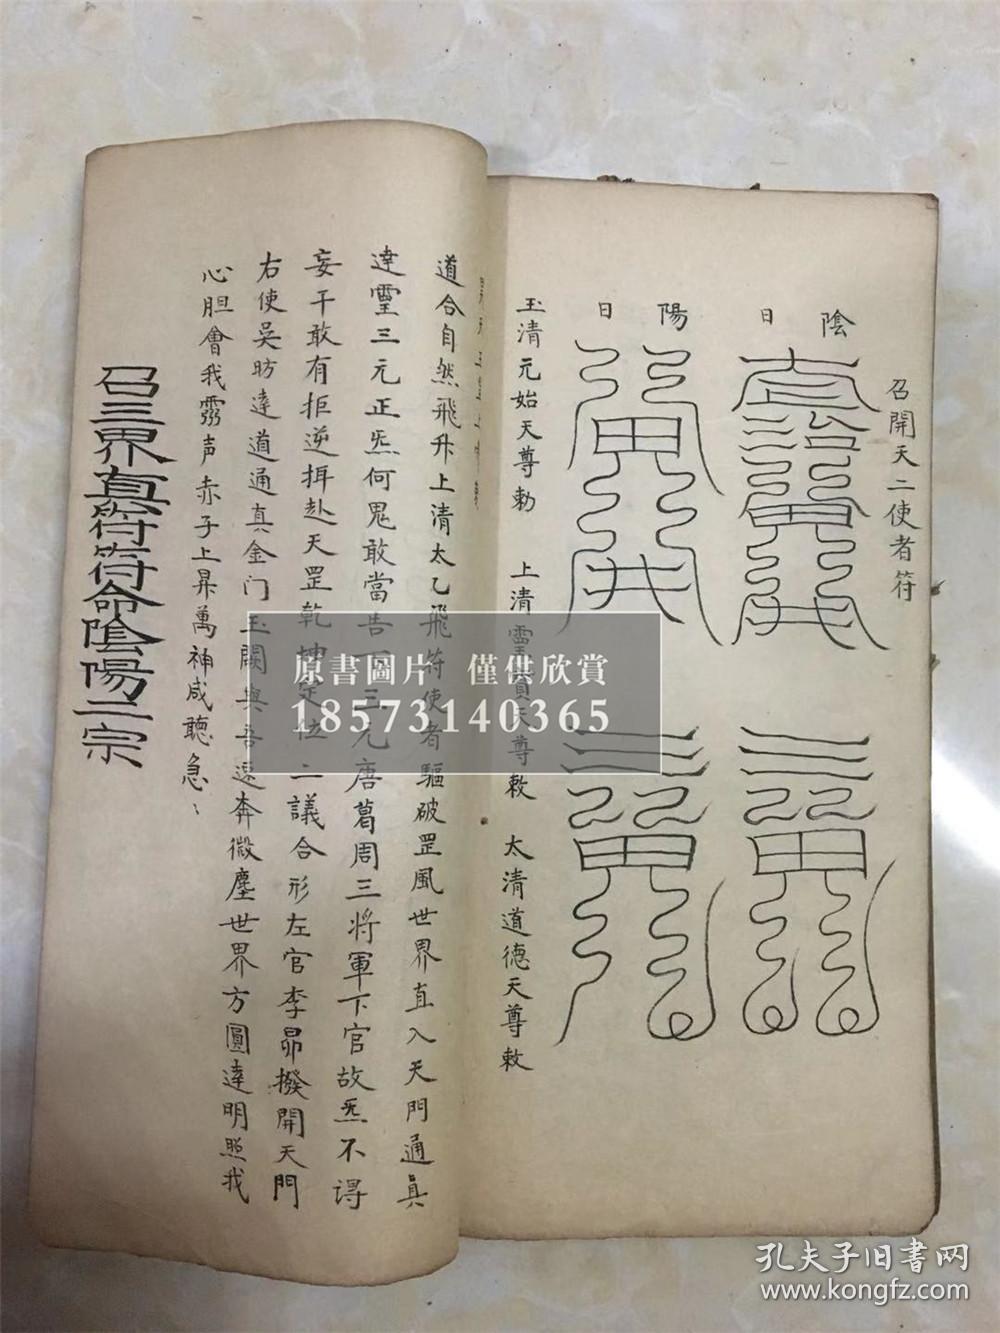 召開天二使者符
陰日
陽日
玉清元始天尊勅 上清靈寶天尊敕 太清道德天尊敕
道合自然飛升上清太乙飛符使者驅破罡風世界直入天門通真
達靈三元正炁何鬼敢當告下三元唐葛周三將軍下官故炁不淂
妄干敢有拒逆搟赴天罡乾坤定位二議合形左官李昴撥開天門
右使吴昉達道通真金门玉闕與吾速奔微塵世界方圓達明照我
心胆會我声赤子上昇萬神咸聽急
召三界真符符命陰陽二宗
原書圖片 僅供欣賞
18573140365
孔夫子旧書网
www.kongfz.com